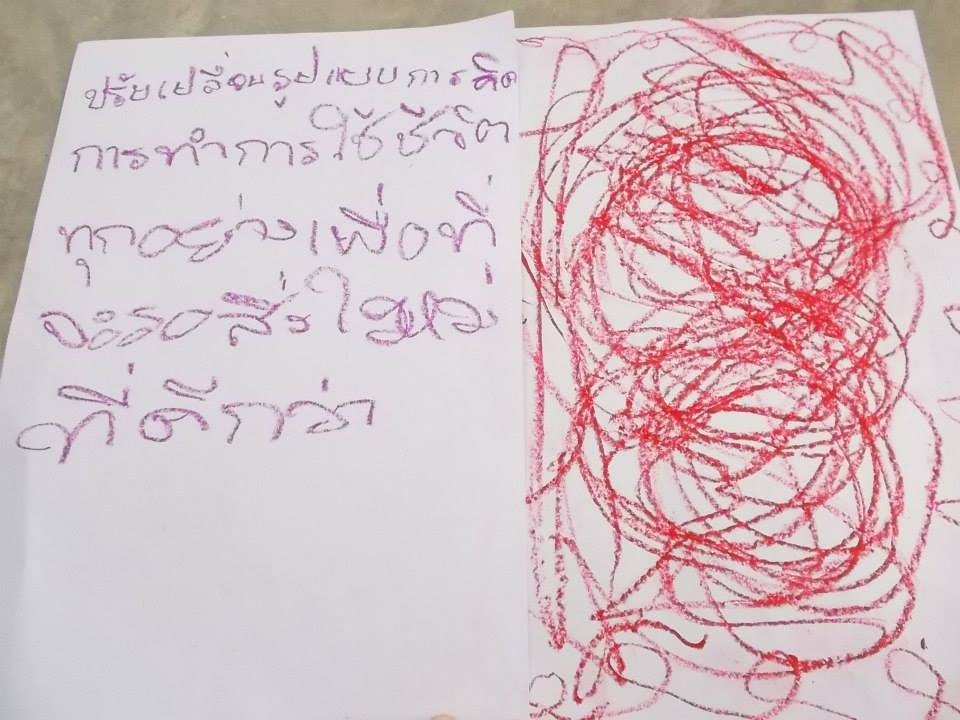 ปรับเปลี่ยนรูปแบบการคิด
การทำการใช้ชีวิต
ทุกอย่างเพื่อที่
จะรอสิ่งใหม่
ที่ดีกว่า